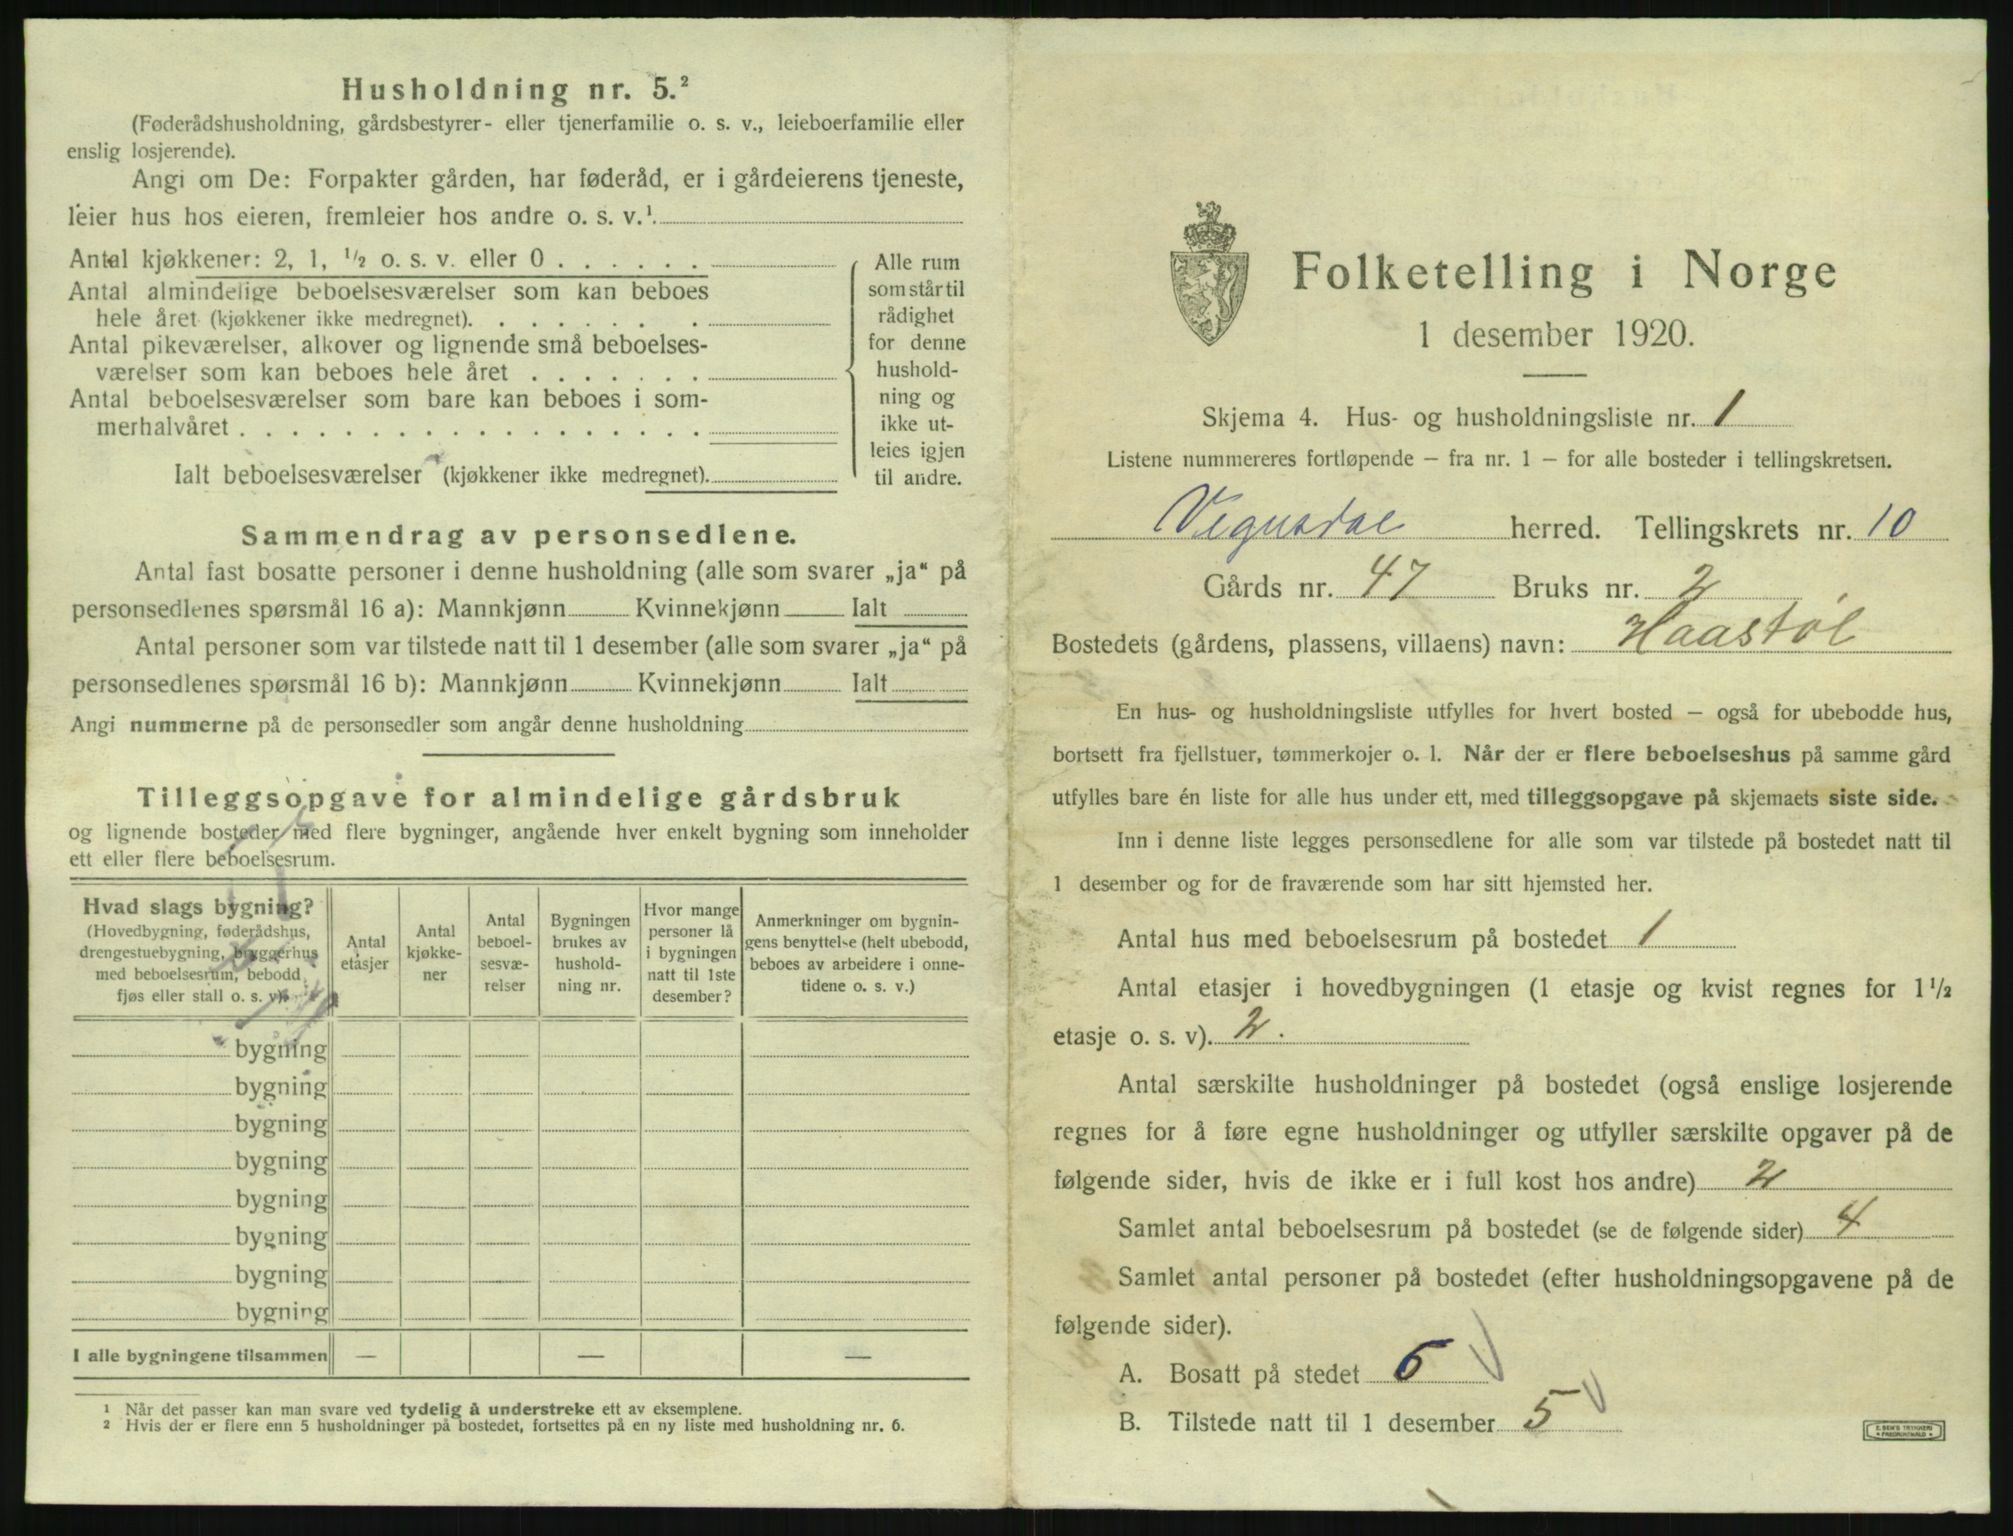 Husholdning nr. 5.²
(Føderådshusholdning, gårdsbestyrer- eller tjenerfamilie o. s. v., leieboerfamilie eller
enslig losjerende).
Angi om De: Forpakter gården, har føderåd, er i gårdeierens tjeneste,
leier hus hos eieren, fremleier hos andre o. s. v.¹.
Antal kjøkkener: 2, 1, ½ o. s. v. eller 0 . . . . . .
Antal almindelige beboelsesværelser som kan beboes
hele året (kjøkkener ikke medregnet). . . . . . . .
Antal pikeværelser, alkover og lignende små beboelses-
værelser som kan beboes hele året . . . . . . .
Antal beboelsesværelser som bare kan beboes i som-
merhalvåret . . . . . . . . . . . . . . . . . .
Ialt beboelsesværelser (kjøkkener ikke medregnet).
Alle rum
som står til
rådighet
for denne
hushold-
ning og
ikke ut-
leies igjen
til andre.
Sammendrag av personsedlene.
Antal fast bosatte personer i denne husholdning (alle som svarer „ja“ på
personsedlenes spørsmål 16 a): Mannkjønn Kvinnekjønn Ialt
Antal personer som var tilstede natt til 1 desember (alle som svarer „ja“ på
personsedlenes spørsmål 16 b): Mannkjønn Kvinnekjønn Ialt
Angi nummerne på de personsedler som angår denne husholdning
Tilleggsopgave for almindelige gårdsbruk
og lignende bosteder med flere bygninger, angående hver enkelt bygning som inneholder
ett eller flere beboelsesrum.
Hvad slags bygning?
(Hovedbygning, føderådshus,
drengestuebygning, bryggerhus
med beboelsesrum, bebodd
fjøs eller stall o. s. v).
Antal
etasjer
Antal
kjøkke-
ner
Antal
beboel-
sesvæ-
relser
Bygningen
brukes av
hushold-
ning nr.
Hvor mange
personer lå
i bygningen
natt til 1ste
desember?
Anmerkninger om bygnin-
gens benyttelse (helt ubebodd,
beboes av arbeidere i onne-
tidene o. s. v.)
bygning
bygning
bygning
bygning
bygning
bygning
bygning
bygning
I alle bygningene tilsammen — — —
¹ Når det passer kan man svare ved tydelig å understreke ett av eksemplene.
² Hvis der er flere enn 5 husholdninger på bostedet, fortsettes på en ny liste med husholdning nr. 6.
Folketelling i Norge
1 desember 1920.
Skjema 4. Hus- og husholdningsliste nr. 1
Listene nummereres fortløpende – fra nr. 1 – for alle bosteder i tellingskretsen.
Vegusdal herred. Tellingskrets nr. 10
Gårds nr. 47 Bruks nr. 2
Bostedets (gårdens, plassens, villaens) navn: Haastøl
En hus- og husholdningsliste utfylles for hvert bosted – også for ubebodde hus,
bortsett fra fjellstuer, tømmerkojer o. l. Når der er flere beboelseshus på samme gård
utfylles bare én liste for alle hus under ett, med tilleggsopgave på skjemaets siste side.
Inn i denne liste legges personsedlene for alle som var tilstede på bostedet natt til
1 desember og for de fraværende som har sitt hjemsted her.
Antal hus med beboelsesrum på bostedet 1
Antal etasjer i hovedbygningen (1 etasje og kvist regnes for 1½
etasje o. s. v). 2.
Antal særskilte husholdninger på bostedet (også enslige losjerende
regnes for å føre egne husholdninger og utfyller særskilte opgaver på de
følgende sider, hvis de ikke er i full kost hos andre) 2
Samlet antal beboelsesrum på bostedet (se de følgende sider) 4
Samlet antal personer på bostedet (efter husholdningsopgavene på de
følgende sider).
A. Bosatt på stedet 6
B. Tilstede natt til 1 desember 5